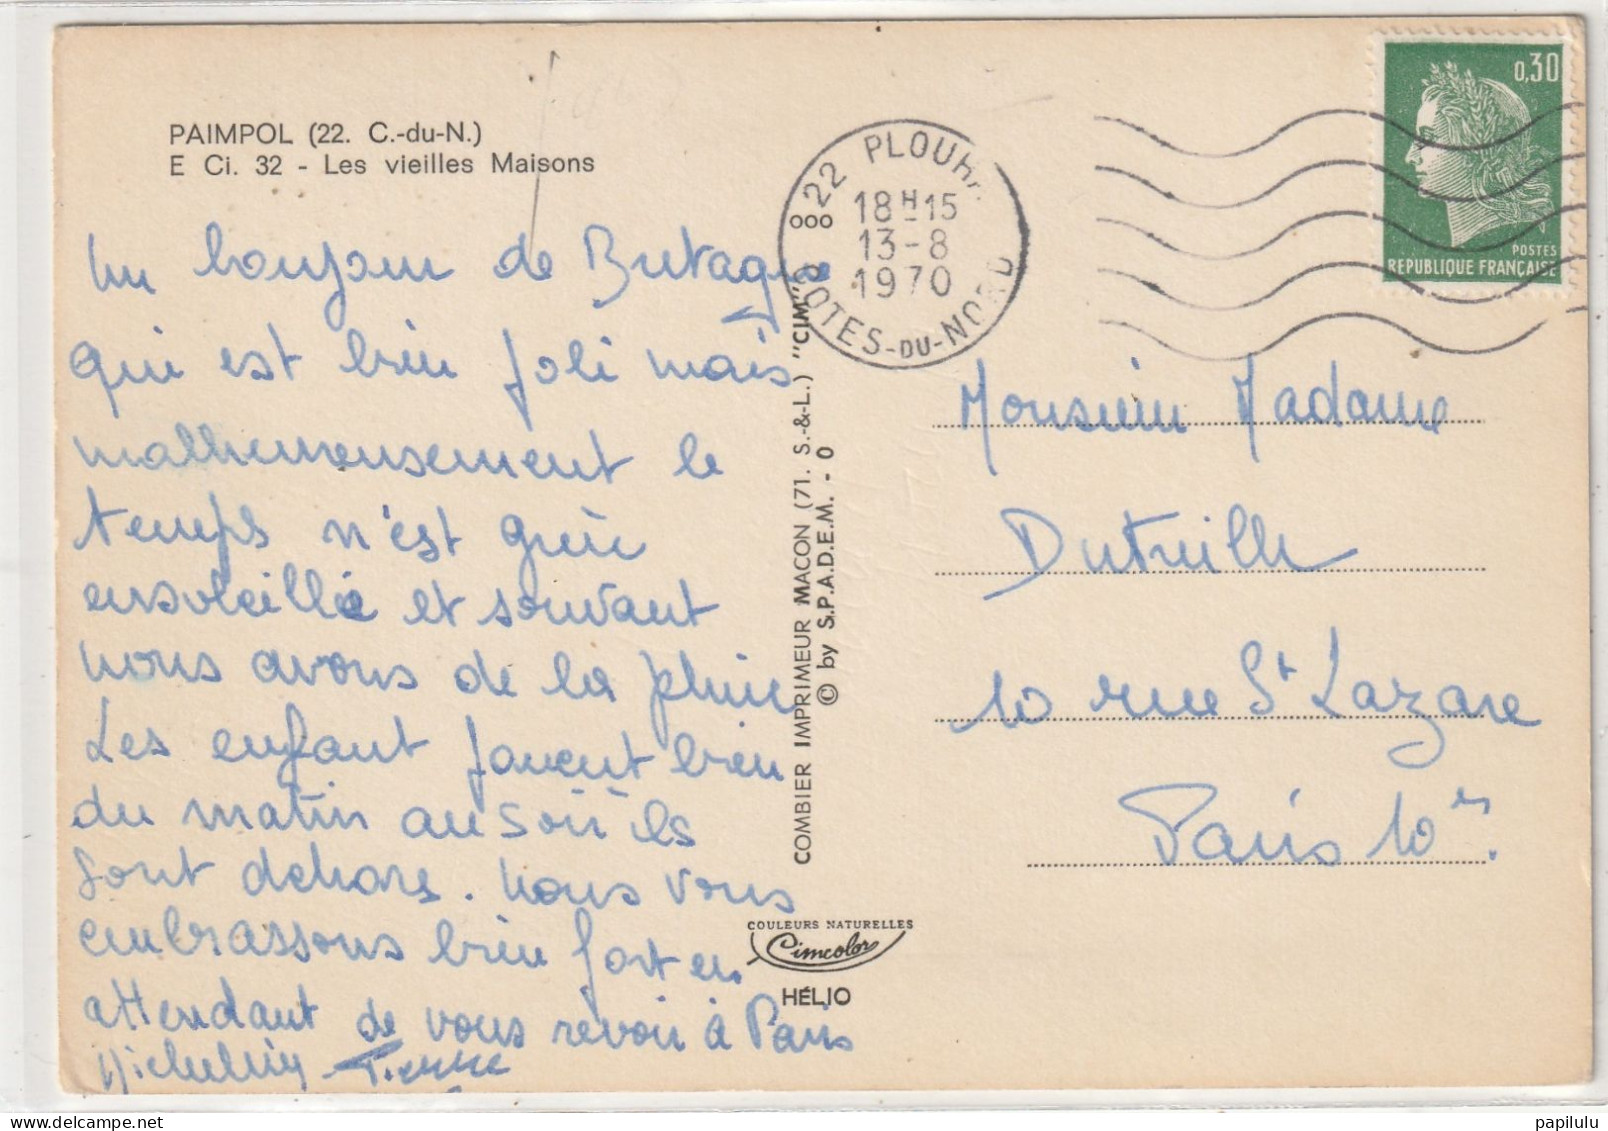 PAIMPOL (22. C.-du-N.)
E Ci. 32 - Les vieilles Maisons
Un bonjour de Bretagne
qui est bien joli mais
malheureusement le
temps n'est guère
ensoleillé et souvant
nous avons de la pluie
Les enfant jouent bien
du matin au soir ils
sont dehors. Nous vous
embrassons bien fort en
attendant de vous revoir à Paris
Pierre
COMBIER IMPRIMEUR MACON (71. S.-&-L.) "CIM"
© by S.P.A.D.E.M. - 0
COULEURS NATURELLES
Cimcolor
HÉLIO
22 PLOUH
18H15
13-8
1970
COTES-DU-NORD
0,30
POSTES
REPUBLIQUE FRANÇAISE
Monsieur Madame
Dutreille
10 rue St Lazare
Paris 10me.
papilulu